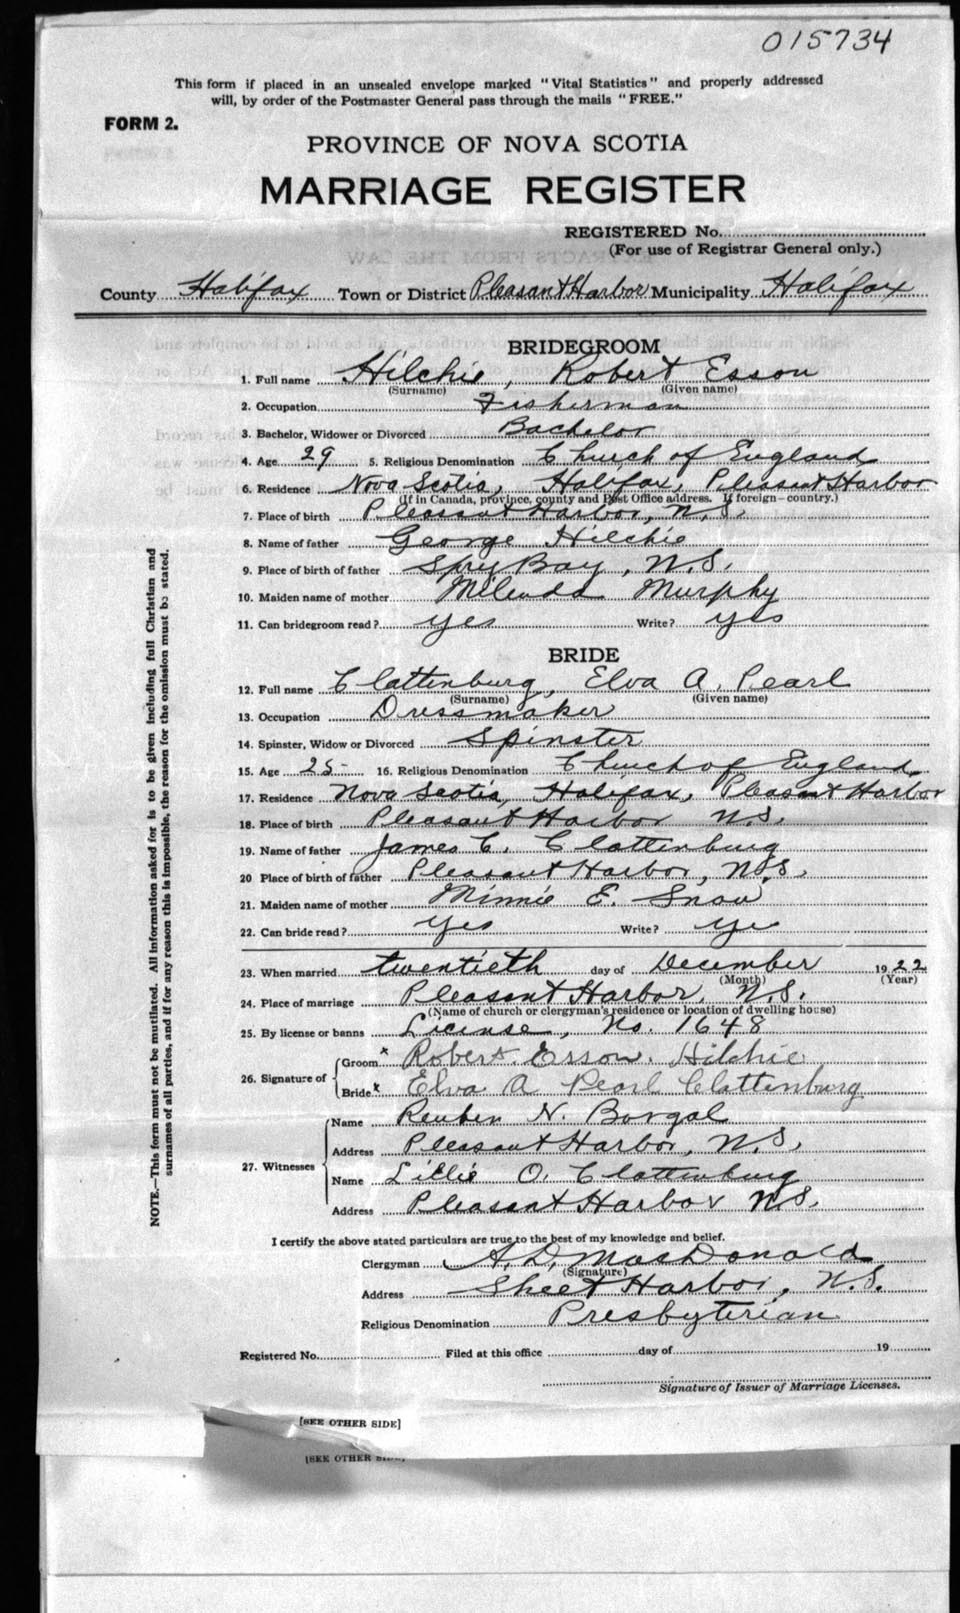 015734
This form if placed in an unsealed envelope marked "Vital Statistics" and properly addressed
will, by order of the Postmaster General pass through the mails "FREE."
FORM 2.
PROVINCE OF NOVA SCOTIA
MARRIAGE REGISTER
REGISTERED No.
(For use of Registrar General only.)
County Halifax Town or District Pleasant Harbor Municipality Halifax
BRIDEGROOM
1. Full name Hilchie, Robert Esson
(Surname) (Given name)
2. Occupation Fisherman
3. Bachelor, Widower or Divorced Bachelor
4. Age 29 5. Religious Denomination Church of England
6. Residence Nova Scotia, Halifax, Pleasant Harbor
(If in Canada, province, county and Post Office address. If foreign—country.)
7. Place of birth Pleasant Harbor, N.S.
8. Name of father George Hilchie
9. Place of birth of father Spry Bay, N.S.
10. Maiden name of mother Milenda Murphy
11. Can bridegroom read? yes Write? yes
BRIDE
12. Full name Clattenburg, Elva A. Pearl
(Surname) (Given name)
13. Occupation Dressmaker
14. Spinster, Widow or Divorced Spinster
15. Age 25 16. Religious Denomination Church of England
17. Residence Nova Scotia, Halifax, Pleasant Harbor
18. Place of birth Pleasant Harbor N.S.
19. Name of father James C. Clattenburg
20 Place of birth of father Pleasant Harbor, N.S.
21. Maiden name of mother Minnie E. Snow
22. Can bride read? yes Write? ye
23. When married twentieth day of December 1922
(Month) (Year)
24. Place of marriage Pleasant Harbor, N.S.
(Name of church or clergyman's residence or location of dwelling house)
25. By license or banns License, No. 1648
26. Signature of Groom x Robert Esson. Hilchie
Bride x Elva A Pearl Clattenburg
27. Witnesses Name Reuben N. Borgal
Address Pleasant Harbor, N.S.
Name Lillie O. Clattenburg
Address Pleasant Harbor N.S.
I certify the above stated particulars are true to the best of my knowledge and belief.
Clergyman A. D. MacDonald
(Signature)
Address Sheet Harbor, N.S.
Religious Denomination Presbyterian
Registered No. Filed at this office day of 19
Signature of Issuer of Marriage Licenses.
[SEE OTHER SIDE]
[SEE OTHER
NOTE.—This form must not be mutilated. All information asked for is to be given including full Christian and
surnames of all parties, and if for any reason this is impossible, the reason for the omission must be stated.